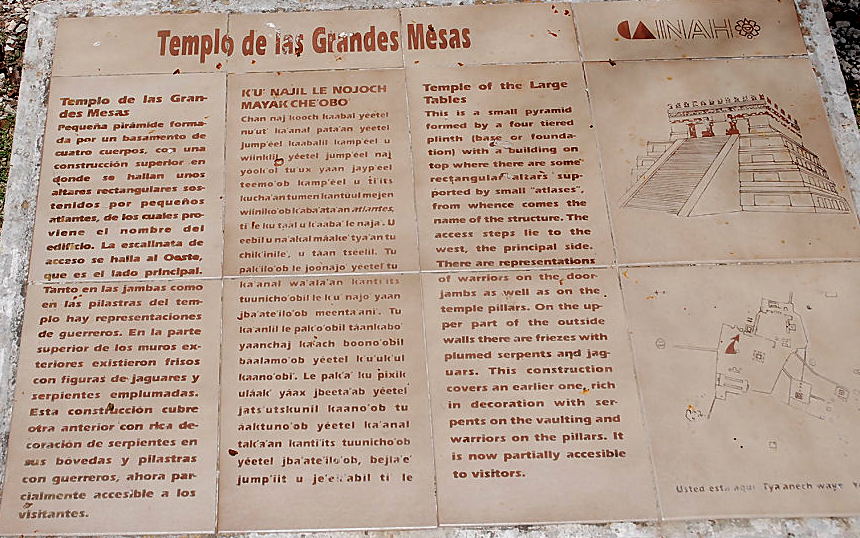 Templo de las Grandes Mesas
INAH
Templo de las Gran-
des Mesas
Pequeña pirámide forma-
da por un basamento de
cuatro cuerpos, con una
construcción superior en
donde se hallan unos
altares rectangulares sos-
tenidos por pequeños
atlantes, de los cuales pro-
viene el nombre del
edificio. La escalinata de
acceso se halla al Oeste,
que es el lado principal.
Tanto en las jambas como
en las pilastras del tem-
plo hay representaciones
de guerreros. En la parte
superior de los muros ex-
teriores existieron frisos
con figuras de jaguares y
serpientes emplumadas.
Esta construcción cubre
otra anterior con rica de-
coración de serpientes en
sus bóvedas y pilastras
con guerreros, ahora par-
cialmente accesible a los
visitantes.
K'U' NAJIL LE NOJOCH
MAYAK CHE'OBO'
Chan naj kooch kaabal yéetel
nu'ut' ka'anal pata'an yéetel
jump'éel kaabalil kamp'éel u
wíinklil, yéetel jump'éel naj
yook'ol tu'ux yaan jayp'éel
teemo'ob kamp'éel u ti'its
kucha'an tumen kantúul mejen
wíiniko'ob k'aba'ata'an atlantes,
ti' le ku taal u k'aaba' le naja'. U
eebil u na'akal máake' tya'an tu
chik'inile', u táan tseelil. Tu
pak'ilo'ob le joonajo' yéetel tu
ka'anal wa'ala'an kanti'its
tuunicho'obil le k'u' najo yaan
jba'ate'ilo'ob meenta'ani'. Tu
ka'anlil le pak'o'obil táankabo'
yaanchaj ka'ach boono'obil
báalamo'ob yéetel k'u'uk'ul
kaano'obi'. Le pak'a' ku pixik
uláak' yáax jbeeta'ab yéetel
jats'utskunil kaano'ob tu
áaktuno'ob yéetel ka'anal
tak'a'an kanti'its tuunicho'ob
yéetel jba'ate'ilo'ob, bejla'e'
jump'íit u je'ek'abil ti' le
Temple of the Large
Tables
This is a small pyramid
formed by a four tiered
plinth (base or founda-
tion) with a building on
top where there are some
rectangular altars sup-
ported by small "atlases",
from whence comes the
name of the structure. The
access steps lie to the
west, the principal side.
There are representations
of warriors on the door-
jambs as well as on the
temple pillars. On the up-
per part of the outside
walls there are friezes with
plumed serpents and jag-
uars. This construction
covers an earlier one, rich
in decoration with ser-
pents on the vaulting and
warriors on the pillars. It
is now partially accesible
to visitors.
Usted esta aqui Tya'anech waye'